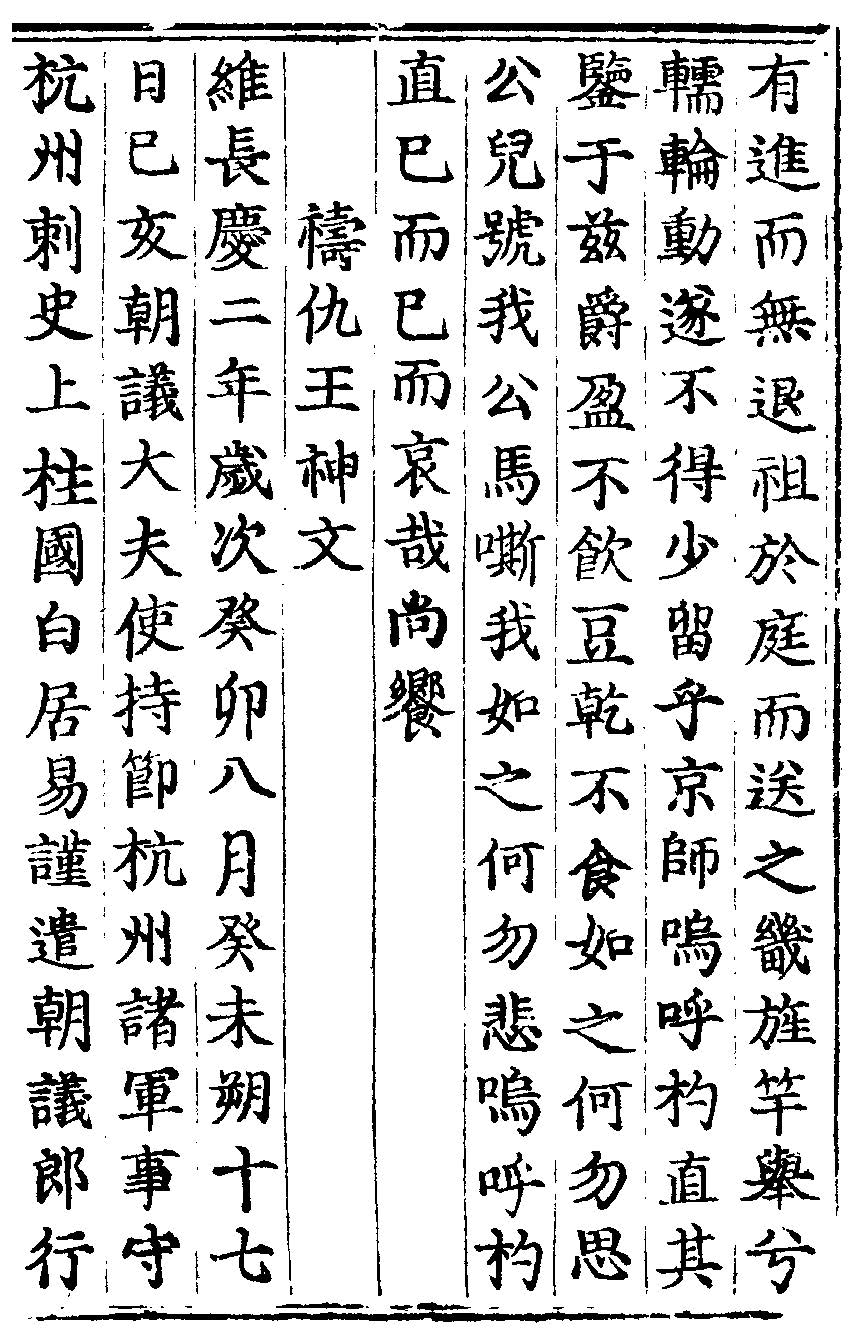 有進而無退祖於庭而送之畿旌竿舉兮
轜輪動遂不得少留乎京師嗚呼杓直其
鑒于兹爵盈不飲豆乾不食如之何勿思
公兒號我公馬嘶我如之何勿悲嗚呼杓
直已而已而哀哉尚饗
禱仇王神文
維長慶二年歲次癸卯八月癸未朔十七
日巳亥朝議大夫使持節杭州諸軍事守
杭州刺史上柱國白居易謹遣朝議郎行